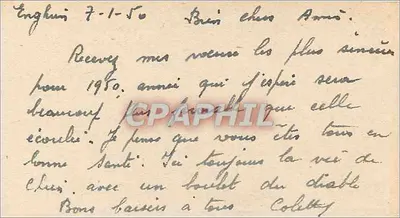 Enghien 7-1-50 Bien chers Amis.
Recevez mes vœux les plus sincères
pour 1950, année qui j'espère sera
beaucoup plus que celle
écoulée. Je pense que vous êtes tous en
bonne santé. Ici toujours la vie de
chien avec un boulot du diable
Bons baisers à tous Colette
CPAPHIL